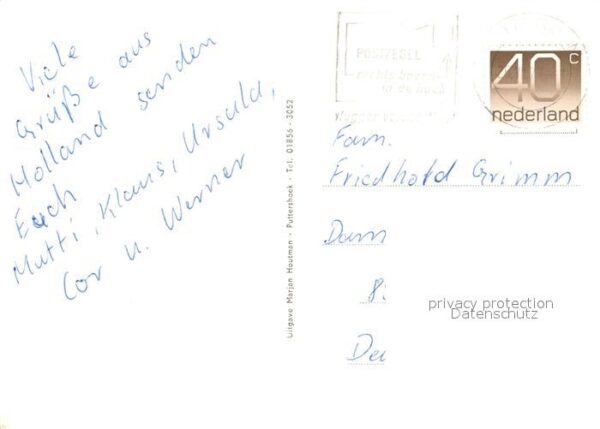 Viele
Grüße aus
Holland senden
Euch
Mutti, Klaus, Ursula,
Cor u. Werner
Uitgave Marjon Houtman - Puttershoek - Tel. 01856 - 3052
POSTZEGEL
rechts boven
in de hoek
40 c
nederland
Fam.
Friedhold Grimm
Dam
8
De
privacy protection
Datenschutz